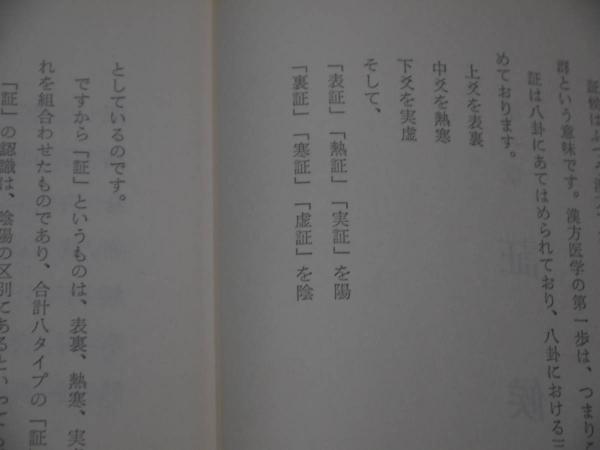 証候
群という意味です。漢方医学の第一歩は、つまり
証は八卦にあてはめられており、八卦における三
めております。
上爻を表裏
中爻を熱寒
下爻を実虚
そして、
「表証」「熱証」「実証」を陽
「裏証」「寒証」「虚証」を陰
としているのです。
ですから「証」というものは、表裏、熱寒、実
れを組合わせたものであり、合計八タイプの「証
「証」の認識は、陰陽の区別にあるといって